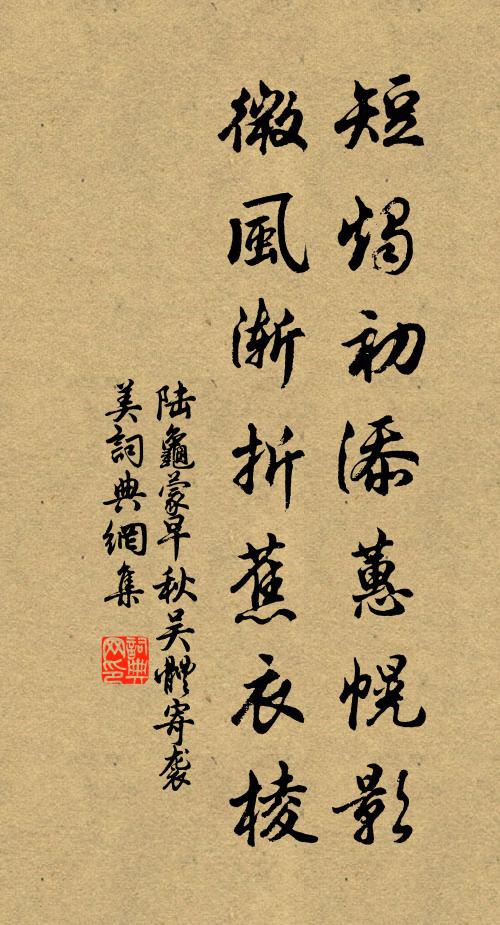 短燭初添蕙幌影
微風漸折蕉衣棱
陆龜蒙早秋吴體寄袭
美詞典網集
詞典网印